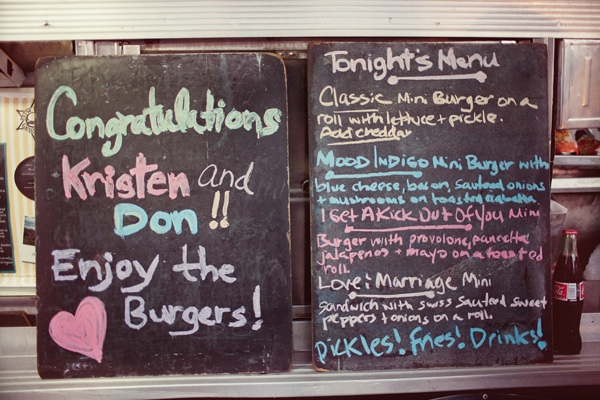 Congratulations
Kristen and
Don !!
Enjoy the
Burgers!
Tonight's Menu
Classic Mini Burger on a
roll with lettuce + pickle.
Add cheddar
MOOD INDIGO Mini Burger with
blue cheese, bacon, sauteed onions
+ mushrooms on toasted ciabatta
I Get A Kick Out Of You Mini
Burger with provolone, pancetta
jalapenos + mayo on a toasted
roll.
Love & Marriage Mini
sandwich with swiss sauteed sweet
peppers + onions on a roll.
Pickles! Fries! Drinks!